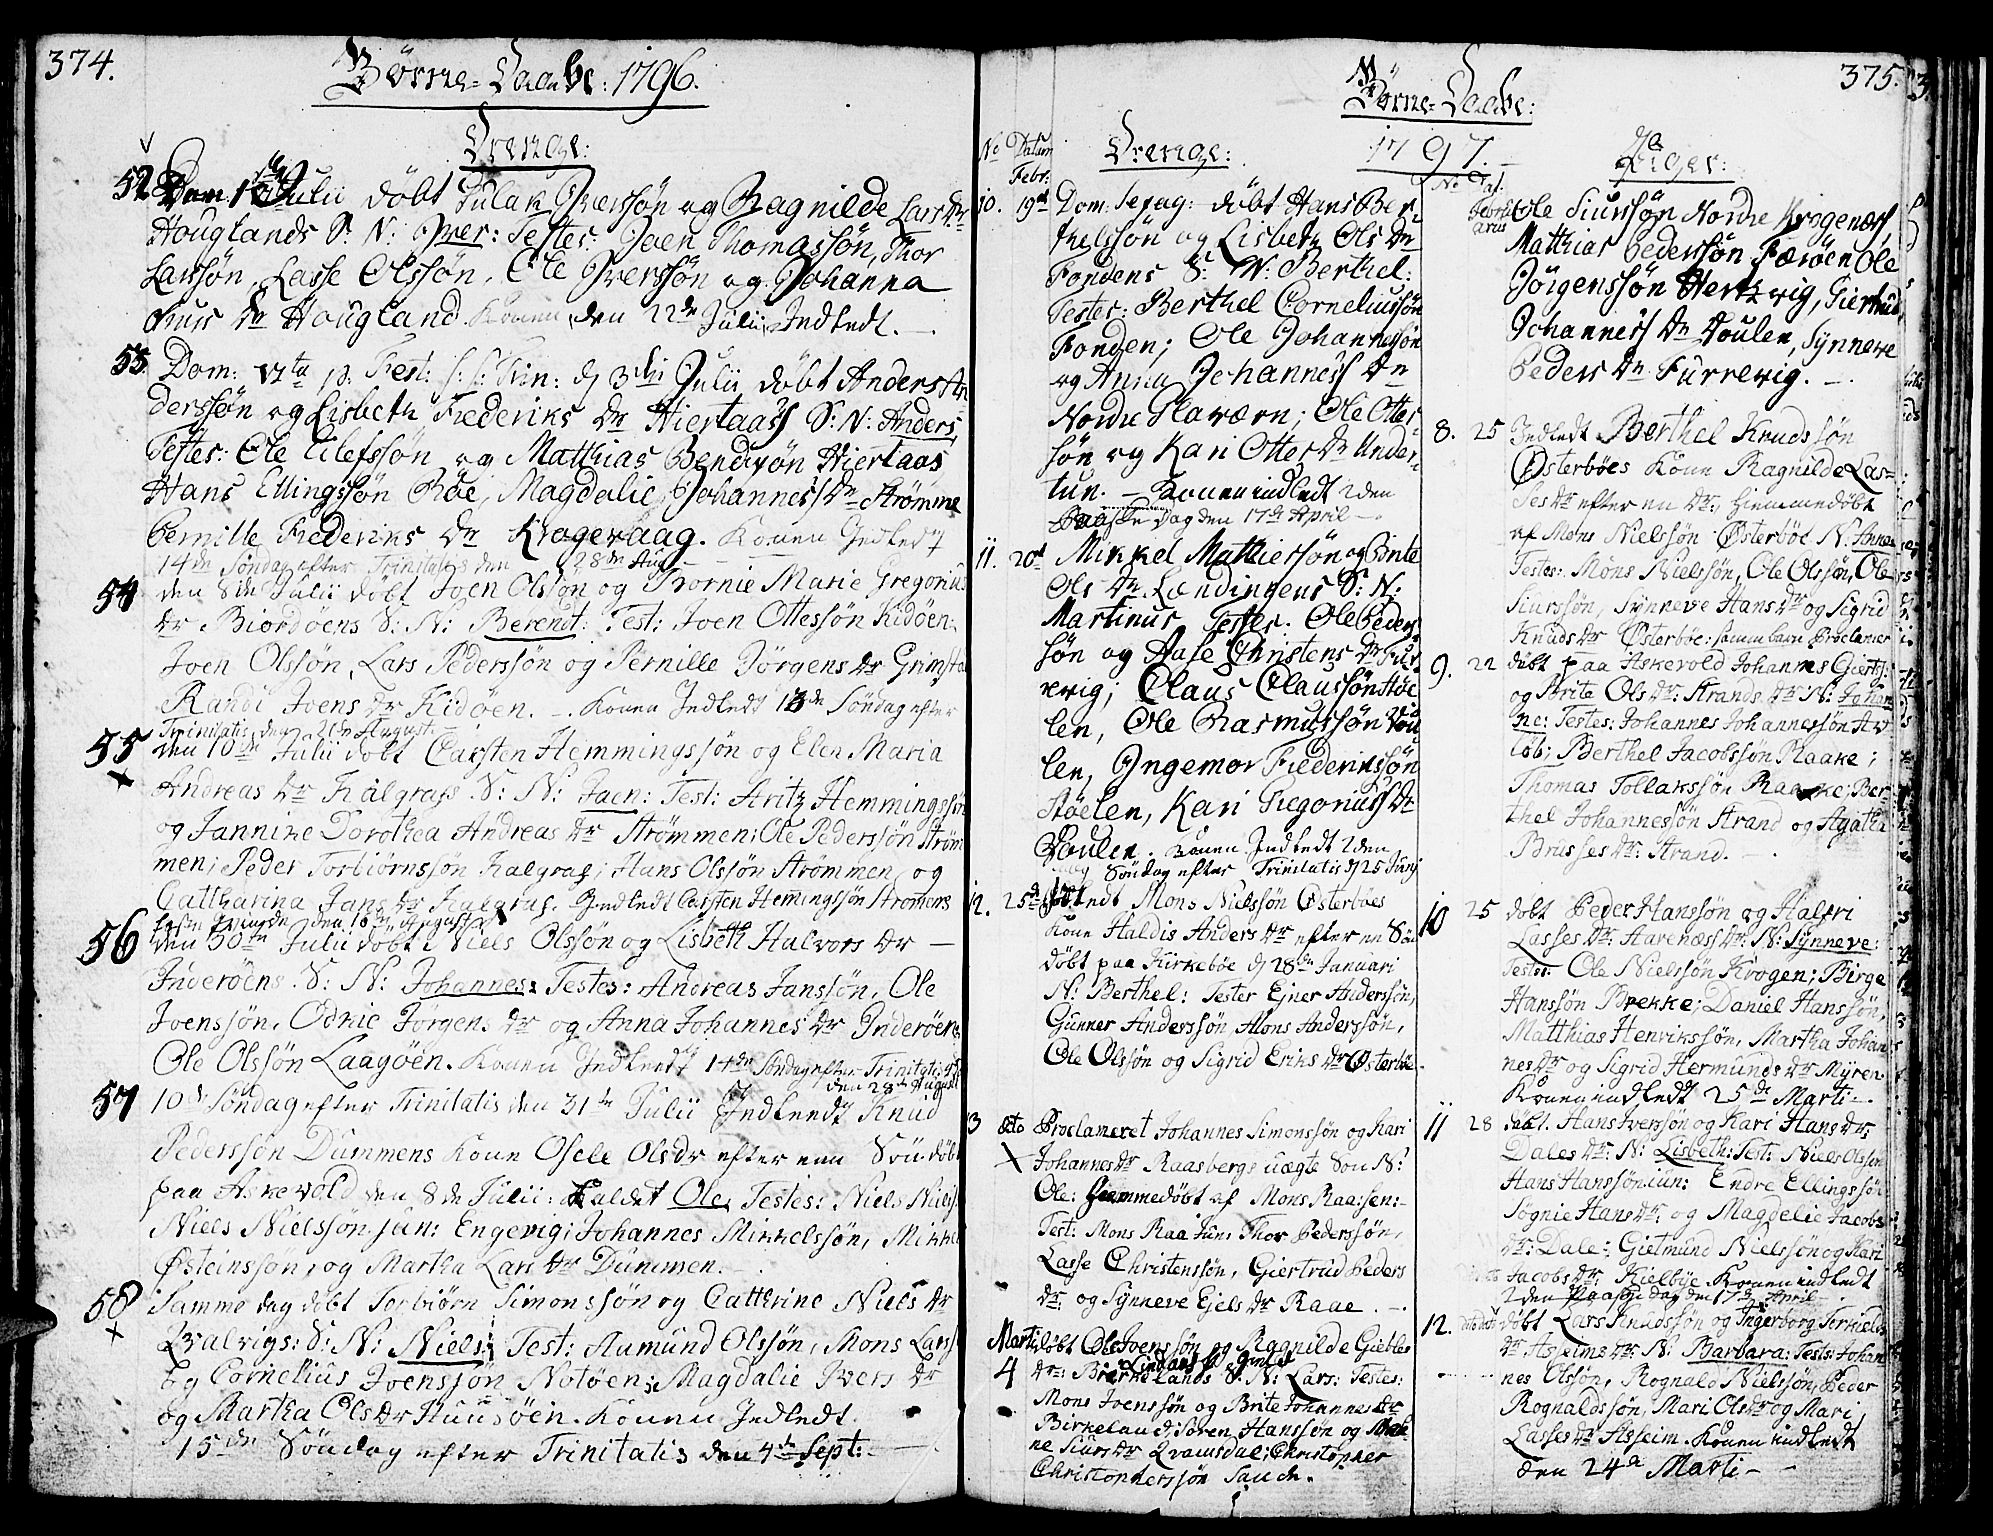 374.
Börne-Daabe: 1796.
Drenge:
52 Dom: Julii döbt Tulak Iverssön og Ragnilde Lars Dr
Houglands S: N: Iver: Testes: Joen Thomassön, Thor
Larssön, Lasse Olssön, Ole Iverssön og Johanna
Siurs Dr Hougland. Konen den 22de Julii Indledt.
53 Dom: p: Fest: S: S: Trin: d 3die Julii döbt Anders An
derssön og Lisbeth Frederiks Dr Hiertaas S: N: Anders
Testes: Ole Elefssön og Matthias Bendixön Hiertaas
Hans Ellingssön Röe, Magdalie Johannes Dr Strömme
Pernille Frederiks Dr Kragevaag. Konen Indledt
14de Söndag efter Trinitatis den 28de Aug
54 den 8de Julii döbt Joen Olsson og Tornie Marie Gregorius
dr Biordöens S: N: Berendt: Test: Joen Ottessön Kidöen:
Joen Olssön, Lars Pederssön og Pernille Jörgens dr Grimsta
Randi Joens dr Kidöen. Konen Indledt 13de Söndag efter
Trinitatis den 21de Auguste
55 den 10de Julii döbt Carsten Hemmingssön og Elen Maria
Andreas dr Kalgrafs S: N: Jaen: Test: Fritz Hemmingssön
og Jannike Dorothea Andreas dr Strömmen; Ole Pederssön Ström
men; Peder Torbiörnssön Kalgraf; Hans Olssön Strömmen og
Catharina Jans dr Kalgraf. Indledt Carsten Hemmingssön Strömens
Qvinde den 16de Augusti
56 den 30te Julii döbt Niels Olssön og Lisbeth Halvors dr
Inderöens. S: N: Johannes: Testes: Andreas Janssön, Ole
Joenssön, Odnie Jorgens dr og Anna Johannes dr Inderöens
Ole Olssön Laagöen. Konen Indledt 14de Söndag efter Trinitatis
den 28de August
57 10de Söndag efter Trinitatis den 31te Julii Indleedt Knud
Pederssön Dummens Kone Osele Olsdr efter en Sön döbt
paa Askevold den 8de Julii: kaldet Ole, Testes: Niels Nielss
Niels Nielssön jun: Engevig; Johannes Mikkelssön, Mikkel
Östeinssön, og Martha Lars Dr Dummen.
58 Samme dag döbt Torbiörn Simonssön og Cathrine Niels dr
Qvalvigs: S: N: Niels: Test: Aumund Olssön, Mons Larss
og Cornelius Joenssön Notöen; Magdalie Ivers dr
og Martha Ols dr Huusöen. Konen Indledt
15de Söndag efter Trinitatis den 4de Sept:
375.
Börne-Daabe:
1797.
No Datum Drenge:
Febr:
10. 19de Dom: Sexag: döbt Hans Ber-
thelssön og Lisbeth Ols Dr
Fondens S: N: Berthel:
Testes: Berthel Corneliussön
Fonden; Ole Johannessön
og Anna Johannes Dr
Nordre Staværn; Ole Otters-
sön og Kari Otters Dr Under-
tun. Konen indledt 2den
Paaske Dag den 17de April
11. 20de Mikkel Mathiessön og Brite
Ols Dr Lændingens S: N:
Martinus, Testes: Ole Peders
sön og Aase Christens Dr Fur
revig; Claus Claussön Stöe
len, Ole Rasmussön Dou-
len, Ingemor Frederikssön
Stöelen, Kari Gregorius Dr
Doulen. Konen Indledt 2den
Söndag efter Trinitatis d 25 Junj
12. 25de Indledt Mons Nielssön Österböes
Kone Haldis Anders Dr efter en Sön
döbt paa Kirkeböe d 28de Januari
N: Berthel: Tester Ejner Anderssön,
Gunner Anderssön, Mons Anderssön,
Ole Olssön og Sigrid Eriks Dr Österböe
3 dto Proclameret Johannes Simonssön og Kari
Johannes Dr Raasbergs uægte Sön N:
Ole: Hiemmedöbt af Mons Raa: sen:
Test: Mons Raa Jun, Thor Pederssön,
Lasse Christenssön, Giertrud Peders
dr: og Synneve Ejels dr Raae.
Marti döbt Ole Joenssön og Ragnilde Gietles
4 dr: Birkelands S: N: Lars: Testes:
Mons Joenssön og Brite Johannes Dr
Birkeland; Sören Hanssön og
ne Siurs dr Qvamsdal; Christopher
Christopherssön Sande.
Piger:
No Dat:
Februarius
Ole Siurssön Nordre Krogenæs,
Matthias Pederssön Færöen, Ole
Jörgenssön Hertzvig, Giertrud
Johannes Dr Doulen, Synneve
Peders Dr Furrevig.
8. 25 Indledt Berthel Knudssön
Österböes Kone Ragnilde Las-
ses dr efter en dr, Hiemmedöbt
af Mons Nielssön Österböe N: Anne
Testes: Mons Nielssön, Ole Olssön, Ole
Siurssön, Synneve Hans dr og Sigrid
Knuds dr Österböe: samme barn Proclamer
9. 22 döbt paa Askevold Johannes Giertsz
og Brite Ols dr: Strands dr N: Johan
ne: Testes: Johannes Johannessön Aar
löb; Berthel Jacobssön Raake;
Thomas Tollakssön Raake; Ber-
thel Johannessön Strand og Agatha
Brusses dr: Strand.
10 25 döbt Peder Hanssön og Halfri
Lasses dr: Aarenæs dr: N: Synneve:
Testes: Ole Nielssön Krogen; Birge
Hanssön Brekke; Daniel Hanssön,
Matthias Henrikssön, Martha Johan
nes dr og Sigrid Hermunds dr Myren
Konen indledt 25de Marti
11 28 döbt. Hans Iverssön og Kari Hans dr:
Dales dr: N: Lisbeth: Test: Niels Olsson
Hans Hanssön iun: Endre Ellingssön
Sognie Hans dr: og Magdelie Jacobs
dr: Dale; Gietmund Nielssön og Kari
Jacobs dr: Kielbye. Konen indledt
2den Paaske dag den 17de April
12. döbt Lars Knudssön og Ingerborg Terkields
dr Asseims dr: N: Barbara: Tests: Johan
nes Olssön, Rognald Nielssön, Peder
Rognaldssön, Mari Ols dr og Mari
Lasses dr Asseim. Konen indledt
den 24de Marti